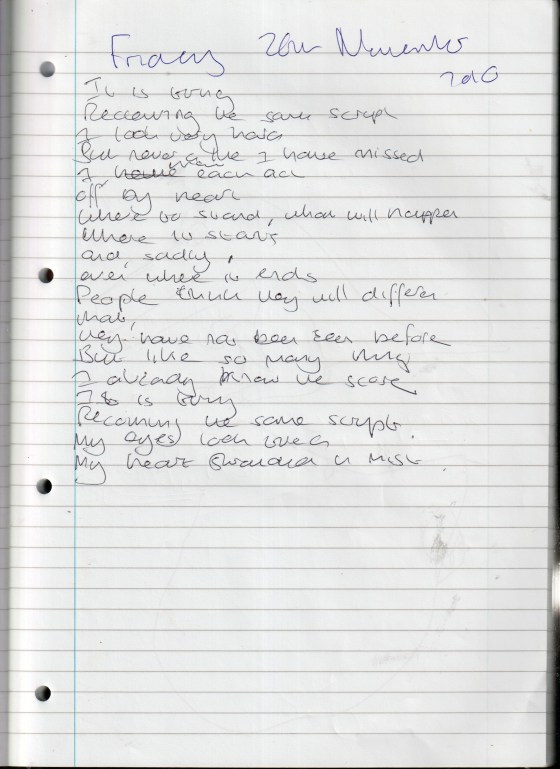 Friday 26th November
2010
It is tiring
Receiving the same script
I look very hard
But never a line I have missed
I know each act
off by heart
Where to stand, what will happen
Where it starts
and, sadly,
even where it ends
People think they will differ
that,
they have not been seen before
But like so many things
I already know the score
It is tiring
Receiving the same script.
My eyes look tired
My heart shrouded in mist.